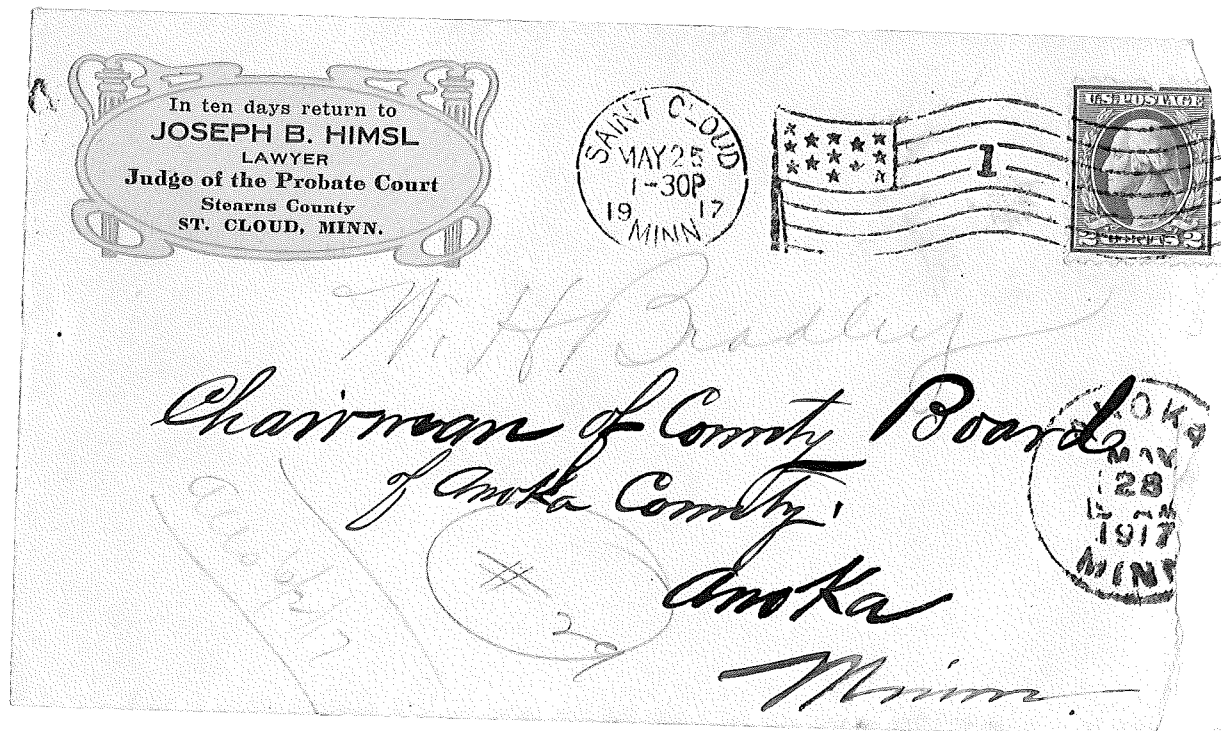 In ten days return to
JOSEPH B. HIMSL
LAWYER
Judge of the Probate Court
Stearns County
ST. CLOUD, MINN.
SAINT CLOUD
MAY 25
1-30P
19 17
MINN
1
U.S. POSTAGE
2 CENTS 2
W. H Bradley
Chairman of County Board
of Anoka County.
Anoka
Minn.
ANOKA
MAY
28
AM
1917
MINN
#